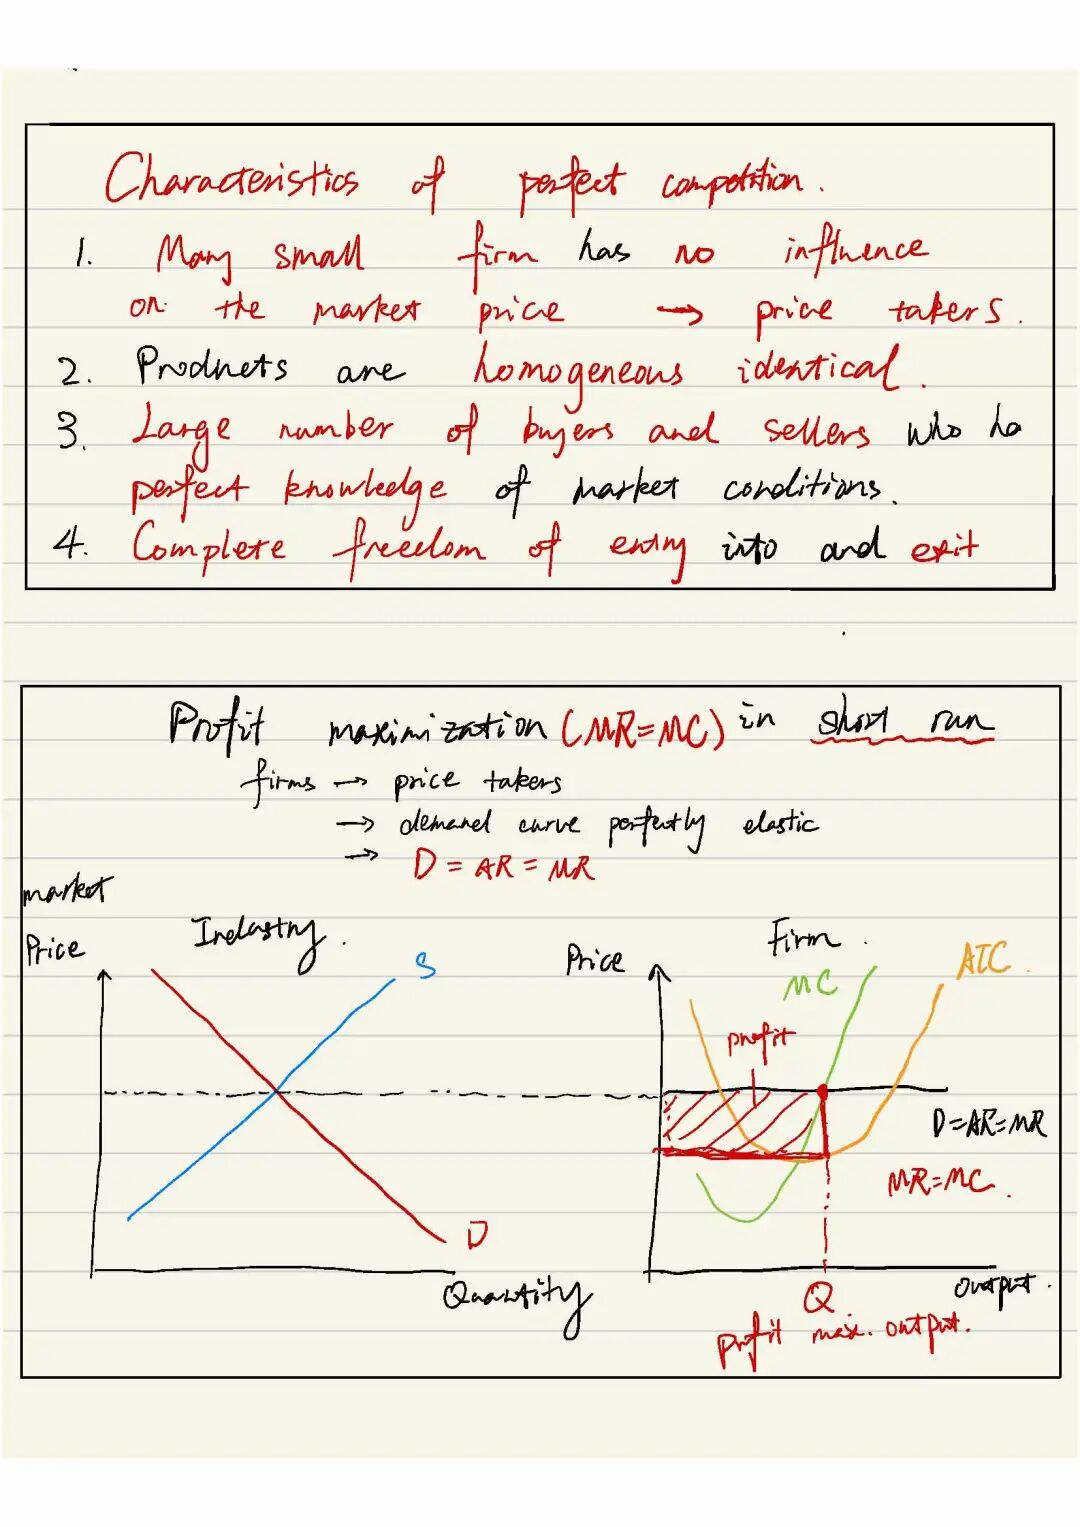 Characteristics of perfect competition.
1. Many small firm has no influence
on the market price → price takers.
2. Products are homogeneous identical.
3. Large number of buyers and sellers who ha
perfect knowledge of market conditions.
4. Complete freedom of entry into and exit
Profit maximization (MR=MC) in short run
firms → price takers
→ demand curve perfectly elastic
→ D = AR = MR
market
Price
Industry.
S
D
Quantity
Price
Firm.
MC
ATC.
profit
D=AR=MR
MR=MC.
Q
output.
profit max. output.